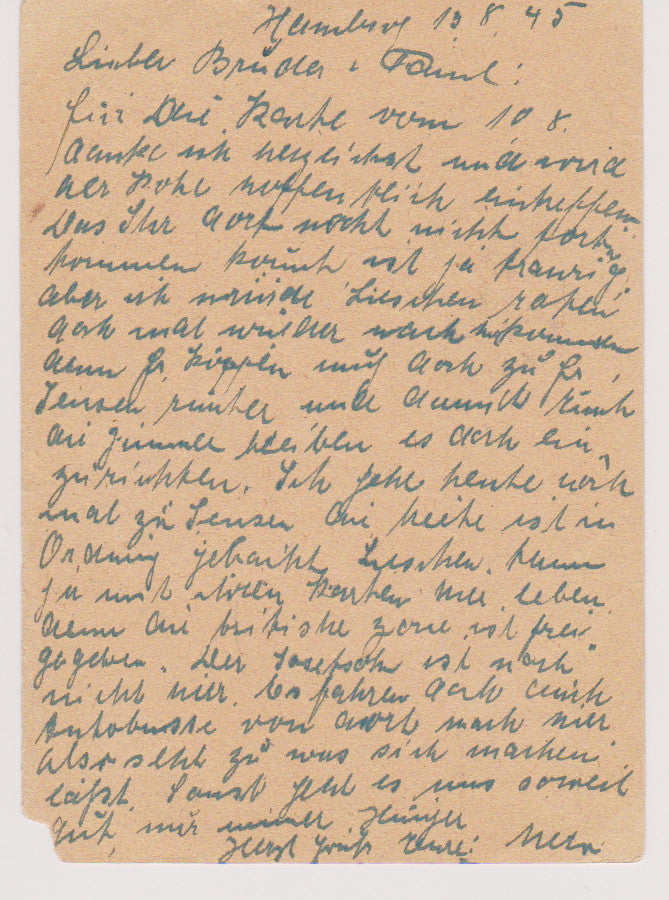 Hamburg 13.8.45
Lieber Brüder + Famil:
für Die Karte vom 10 8.
danke ich herzlichst und wird
der hoffentlich eintreffen
Das Ihr dort noch nicht fort
kommen könnt ist ja traurig
aber ich würde Lieschen raten
doch mal wieder nach
denn Fr. muß doch zu Fr.
Jensen und damit
die Zimmer bleiben es doch ein-
zurichten. Ich gehe heute noch
mal zu Jensen die ist in
Ordnung gebracht Lieschen kann
ja mit Karten hier leben
denn die britische zone ist frei
gegeben. Der ist noch
nicht hier. Es fahren doch auch
Autobusse von dort nach hier
also seht zu was sich machen
läßt. Sonst geht es uns soweit
gut, nur immer Hunger
Herzl Grüße Eure: